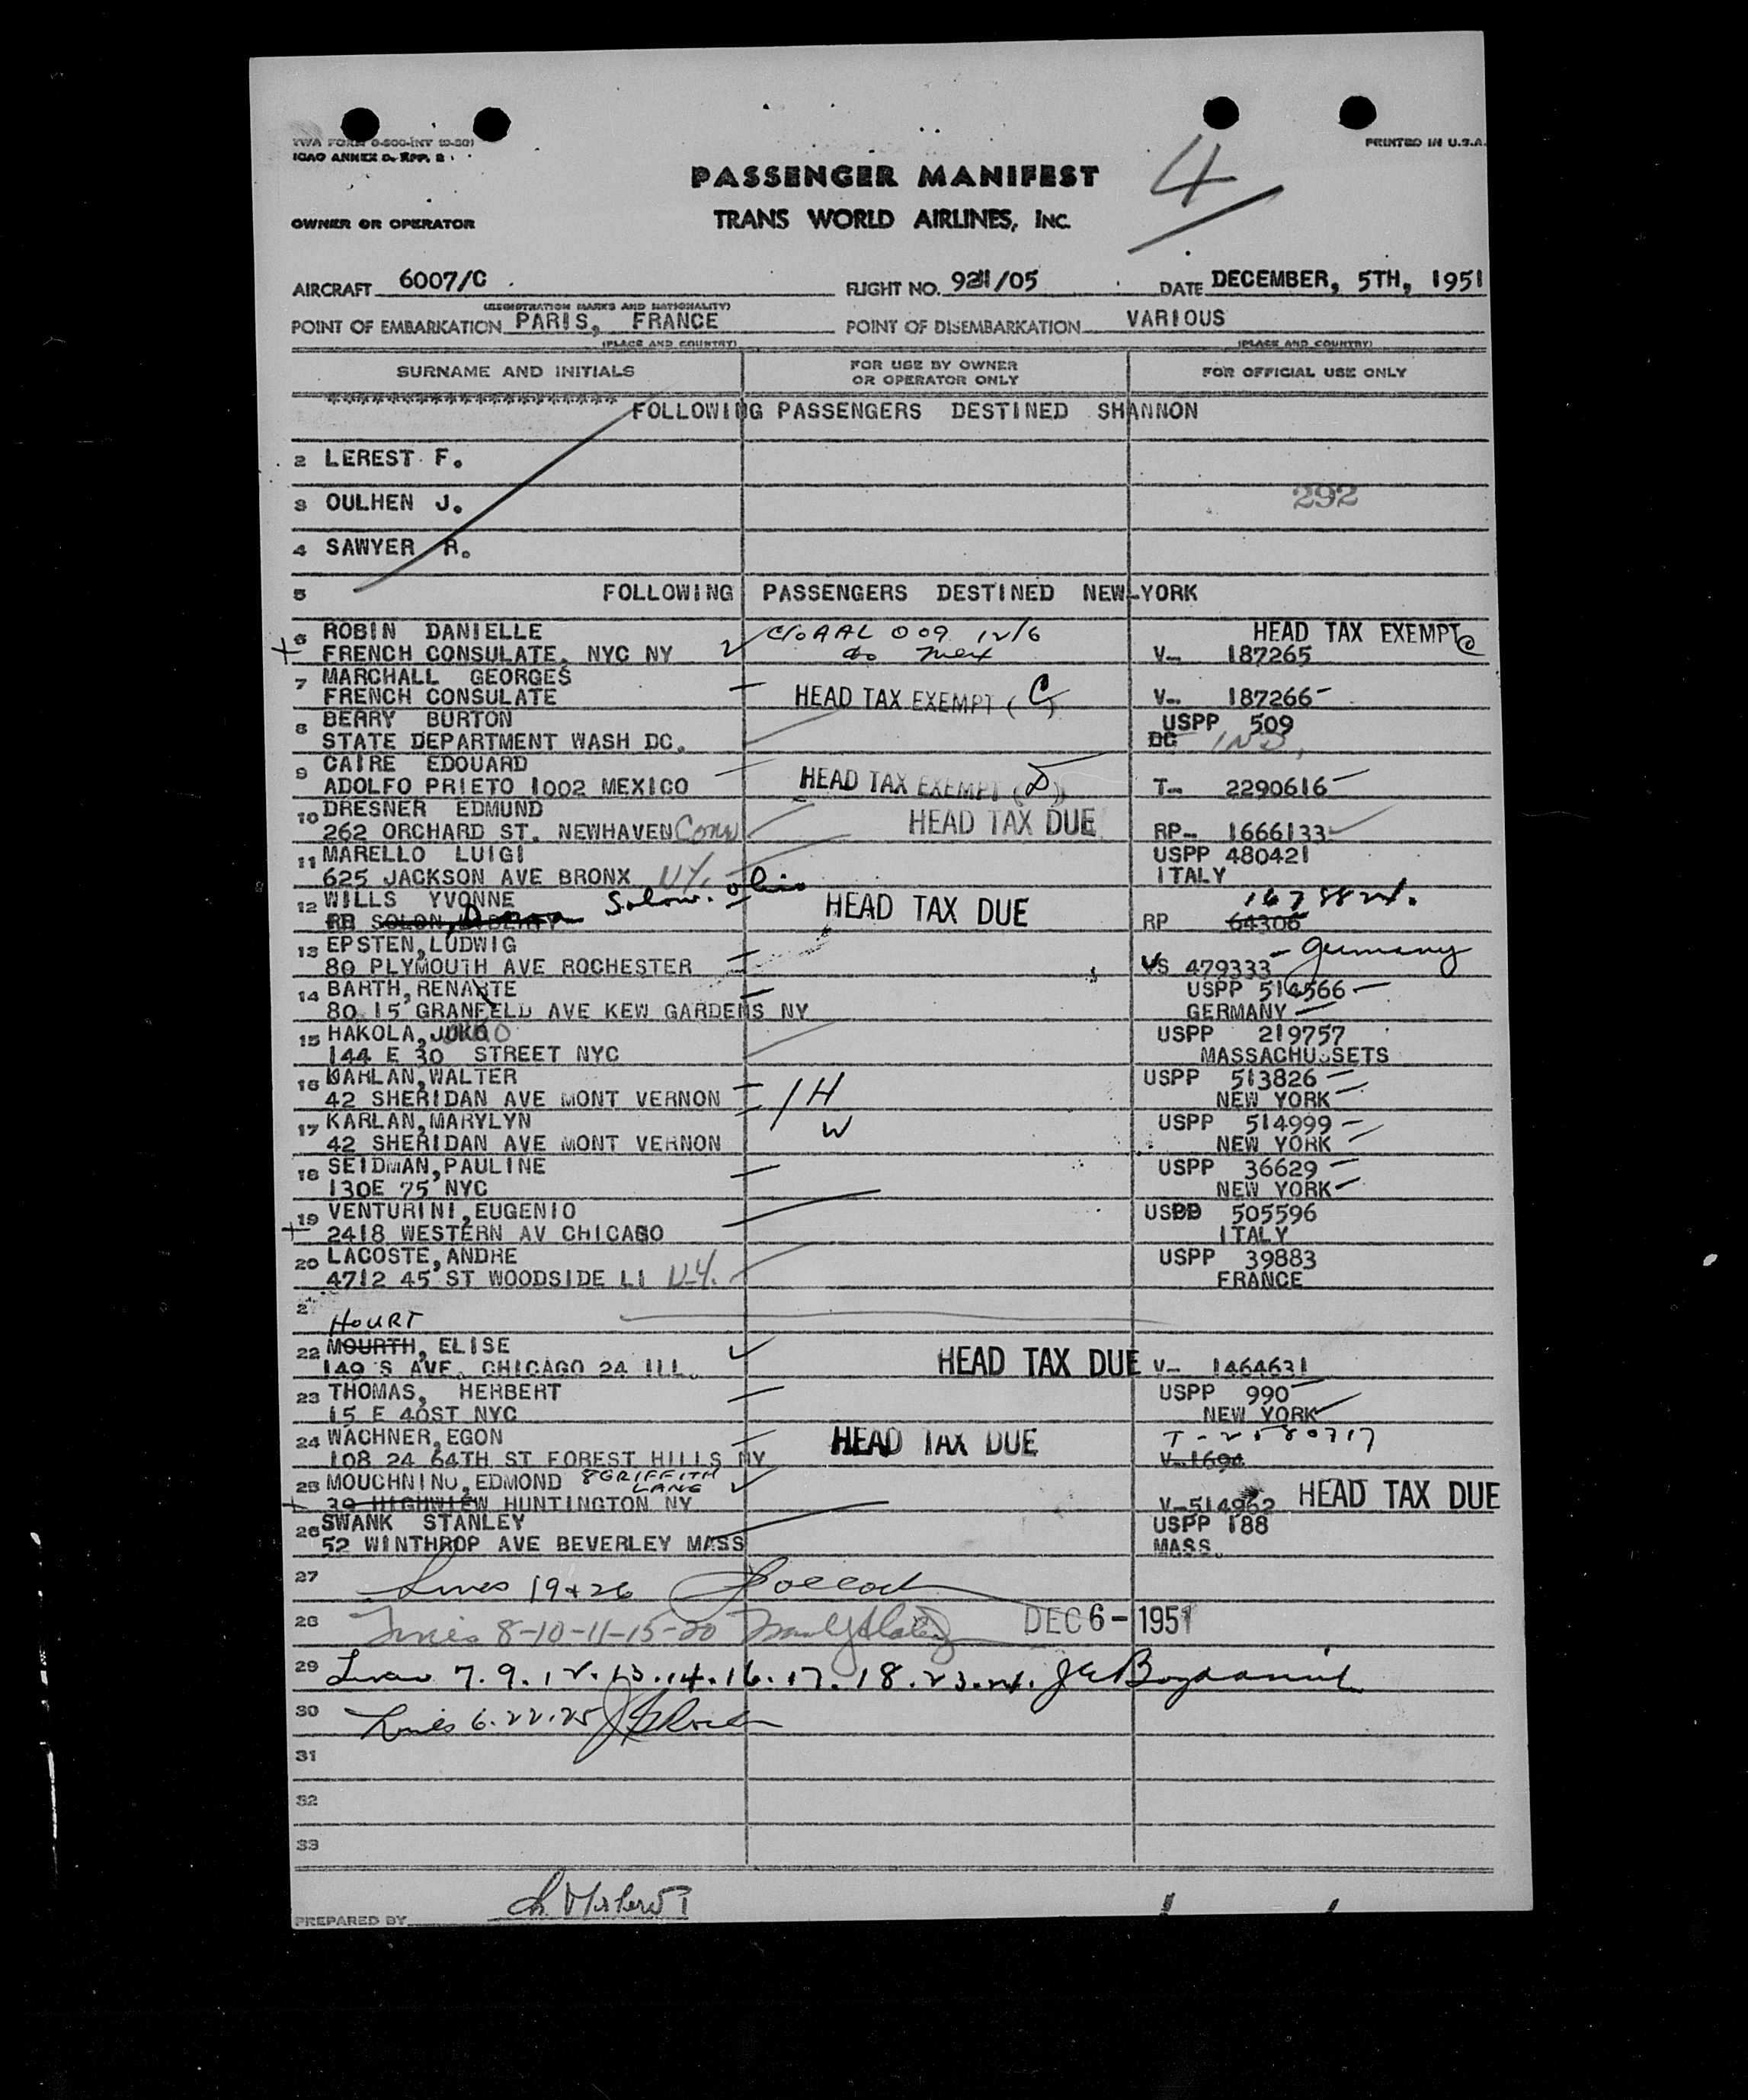 TWA FORM 0-500-INT 10-50
ICAO ANNEX D. APP. 2
PRINTED IN U.S.A.
PASSENGER MANIFEST
4
TRANS WORLD AIRLINES, INC.
OWNER OR OPERATOR
AIRCRAFT 6007/C FLIGHT NO. 921/05 DATE DECEMBER, 5TH, 1951
(REGISTRATION MARKS AND NATIONALITY)
POINT OF EMBARKATION PARIS, FRANCE POINT OF DISEMBARKATION VARIOUS
(PLACE AND COUNTRY) (PLACE AND COUNTRY)
SURNAME AND INITIALS FOR USE BY OWNER OR OPERATOR ONLY FOR OFFICIAL USE ONLY
FOLLOWING PASSENGERS DESTINED SHANNON
2 LEREST F.
3 OULHEN J. 292
4 SAWYER R.
5 FOLLOWING PASSENGERS DESTINED NEW-YORK
6 ROBIN DANIELLE C/o AAL 009 12/6 HEAD TAX EXEMPT
FRENCH CONSULATE, NYC NY to Mex V- 187265
7 MARCHALL GEORGES
FRENCH CONSULATE HEAD TAX EXEMPT (C) V- 187266
8 BERRY BURTON USPP 509
STATE DEPARTMENT WASH DC. DC IND,
9 CAIRE EDOUARD
ADOLFO PRIETO 1002 MEXICO HEAD TAX EXEMPT (D) T- 2290616
10 DRESNER EDMUND HEAD TAX DUE
262 ORCHARD ST. NEWHAVEN Conn RP- 1666133
11 MARELLO LUIGI USPP 480421
625 JACKSON AVE BRONX NY. ITALY
12 WILLS YVONNE Solon. Ohio HEAD TAX DUE 1678824.
RR SOLON, RP 64306
13 EPSTEN, LUDWIG
80 PLYMOUTH AVE ROCHESTER VS 479333 - Germany
14 BARTH, RENATE USPP 514566
80 15 GRANFELD AVE KEW GARDENS NY GERMANY
15 HAKOLA, USPP 219757
144 E 30 STREET NYC MASSACHUSSETS
16 KARLAN, WALTER USPP 513826
42 SHERIDAN AVE MONT VERNON H NEW YORK
17 KARLAN, MARYLYN W USPP 514999
42 SHERIDAN AVE MONT VERNON NEW YORK
18 SEIDMAN, PAULINE USPP 36629
130E 75 NYC NEW YORK
19 VENTURINI, EUGENIO USPP 505596
2418 WESTERN AV CHICAGO ITALY
20 LACOSTE, ANDRE USPP 39883
4712 45 ST WOODSIDE LI N.Y. FRANCE
21
HOURT
22 MOURTH, ELISE
149 S AVE. CHICAGO 24 ILL. HEAD TAX DUE V- 1464631
23 THOMAS, HERBERT USPP 990
15 E 40ST NYC NEW YORK
24 WACHNER, EGON HEAD TAX DUE T-2580717
108 24 64TH ST FOREST HILLS NY V-1694
25 MOUCHNINO, EDMOND 8 GRIFFITH LANE
39 HIGHVIEW HUNTINGTON NY V-514962 HEAD TAX DUE
26 SWANK STANLEY USPP 188
52 WINTHROP AVE BEVERLEY MASS MASS.
27 Lines 19 + 26
28 Lines 8-10-11-15-20 DEC 6 - 1951
29 Lines 7.9.12.13.14.16.17.18.23.24.
30 Lines 6.22.25
31
32
33
PREPARED BY